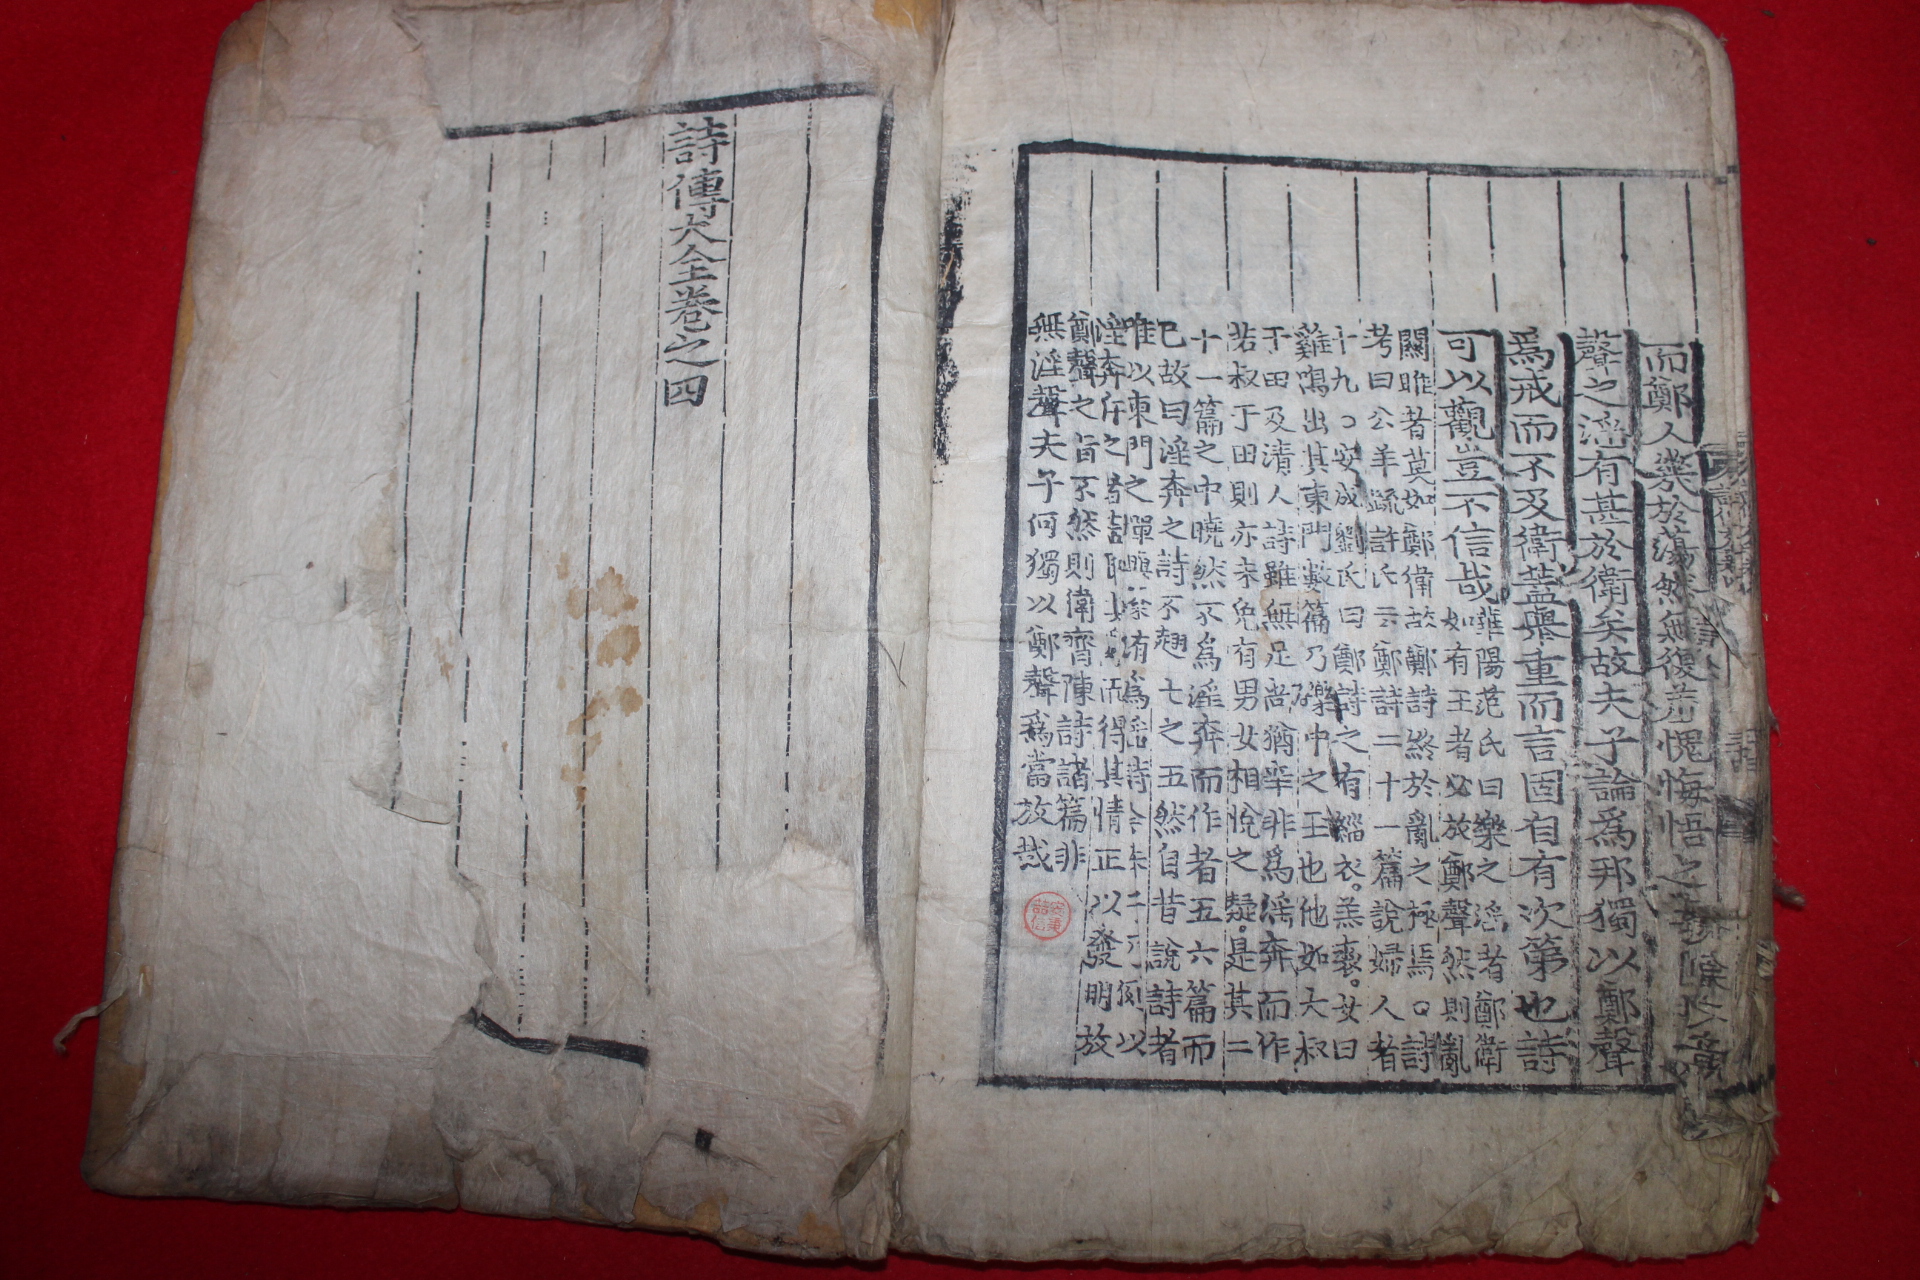 而鄭人幾於蕩然無復羞愧悔悟之
聲之淫有甚於衛矣故夫子論爲邦獨以鄭聲
爲戒而不及衛蓋舉重而言固自有次第也詩
可以觀豈不信哉
華陽范氏曰樂之淫者鄭衛
如有王者必放鄭聲然則亂
關雎者莫如鄭衛故鄭詩終於亂之極焉○詩
考曰公羊疏許氏云鄭詩二十一篇說婦人者
十九○安成劉氏曰鄭詩之有緇衣。羔裘。女曰
雞鳴出其東門數篇乃礫中之玉也他如大叔
于田及清人詩雖無足尚猶幸非爲淫奔而作
若叔于田則亦未免有男女相悅之疑。是其二
十一篇之中曉然不爲淫奔而作者五六篇而
已故曰淫奔之詩不翅七之五然自昔說詩者
唯以東門之墠與溱洧爲淫詩今朱子乃例以
淫奔斥之 而得其情正以發明放
鄭聲之旨不然則衛齊陳詩諸篇非
無淫聲夫子何獨以鄭聲爲當放哉
詩傳大全卷之四